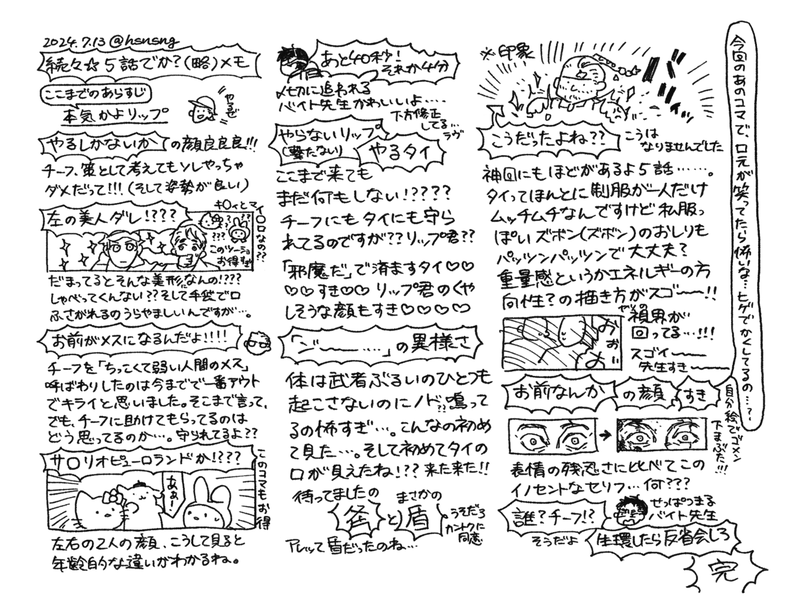 2024.7.13 @hsnsng
続々☆5話でか?(略)メモ
ここまでのあらすじ
本気かよリップ
やるしかないか の顔良良良!!!
チーフ、策として考えてもソレやっちゃ
ダメだって!!!(そして姿勢が良い)
左の美人ダレ!????
このツーショ
お得すぎ
だまってるとそんな美形なんの!???
しゃべってくんない??そして手袋で口
ふさがれるのうらやましいんですが…。
お前がメスになるんだよ!!!!
チーフを「ちっこくて弱い人間のメス」
呼ばわりしたのは今までで一番アウト
でキライと思いました。そこまで言って、
でも、チーフに助けてもらってるのは
どう思ってるのか…。守られてるよ??
サ〇リオピューロランドか!????
このコマもお得
あぁー
左右の2人の顔、こうして見ると
年齢的な違いがわかるね。
あと40秒!
それか4分
〆切に追われる
バイト先生かわいいよ…
下方修正
してる…
ラヴ
やらないリップ
(撃たない)
やるタイ
ここまで来ても
まだ何もしない!????
チーフにもタイにも守ら
れてるのですが??リップ君??
「邪魔だ」で済ますタイ♡♡
♡♡すき♡♡ リップ君のくや
しそうな顔もすき♡♡♡♡♡
「ジ〜〜……」の異様さ
体は武者ぶるいのひとつも
起こさないのにノド??鳴って
るの怖すぎ…。こんなの初め
て見た…。そして初めてタイの
口が見えたね!?? 来た来た!!
待ってましたの
まさかの
と盾
うそだろ
カントクに
同意
アレって盾だったのね…
※印象
こうだったよね??
こうは
なりませんでした
神回にもほどがあるよ5話……。
タイってほんとに制服が一人だけ
ムッチムチなんですけど私服っ
ぽいズボン(ズボン)のおしりも
パッツンパッツンで大丈夫?
重量感というかエネルギーの方
向性?の描き方がスゴ〜〜!!
視界が
回ってる…!!!
スゴイ〜〜
先生すき〜〜
お前なんか の顔 すき
自分絵でゴメン
下まぶた!!!
表情の残忍さに比べてこの
イノセントなセリフ…何???
誰?チーフ!?
そうだよ
せっぱつまる
バイト先生
生還したら反省会しろ
完
今回のあのコマで、口元が笑ってたら怖いな…ヒゲでかくしてるの…?